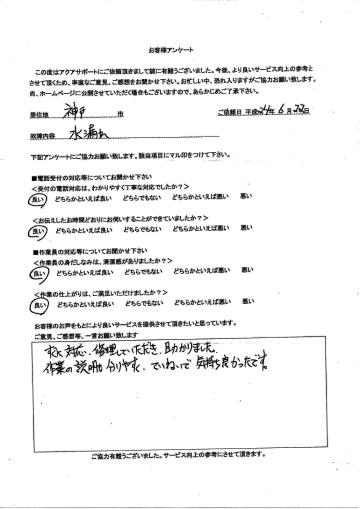 お客様アンケート
この度はアクアサポートにご依頼頂きまして誠に有難うございました。今後、より良いサービス向上の参考と
させて頂くため、率直なご意見、ご感想をお聞かせ下さい。お忙しい中、恐れ入りますがご協力お願い致します。
尚、ホームページに公開させていただく場合もございますので、あらかじめご了承下さい。
居住地 神戸 市 ご依頼日 平成24年 6月 22日
故障内容 水漏れ
下記アンケートにご協力お願い致します。該当項目にマル印をつけて下さい。
■電話受付の対応等についてお聞かせ下さい
<受付の電話対応は、わかりやすく丁寧な対応でしたか？>
良い どちらかといえば良い どちらでもない どちらかといえば悪い 悪い
<お伝えしたお時間どおりにお伺いすることができていましたか？>
良い どちらかといえば良い どちらでもない どちらかといえば悪い 悪い
■作業員の対応等についてお聞かせ下さい
<作業員の身だしなみは、清潔感がありましたか？>
良い どちらかといえば良い どちらでもない どちらかといえば悪い 悪い
<作業の仕上がりは、ご満足いただけましたか？>
良い どちらかといえば良い どちらでもない どちらかといえば悪い 悪い
お客様のお声をもとにより良いサービスを提供させて頂きたいと思っています。
ご意見、ご感想等、一言お願い致します
すぐに対応、修理していただき、助かりました。
作業の説明も分りやすく、ていねいで気持ち良かったです。
ご協力有難うございました。サービス向上の参考にさせて頂きます。